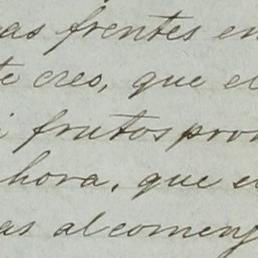 as frentes en
te creo, que el
i frutos pron
hora, que e
as al comenz